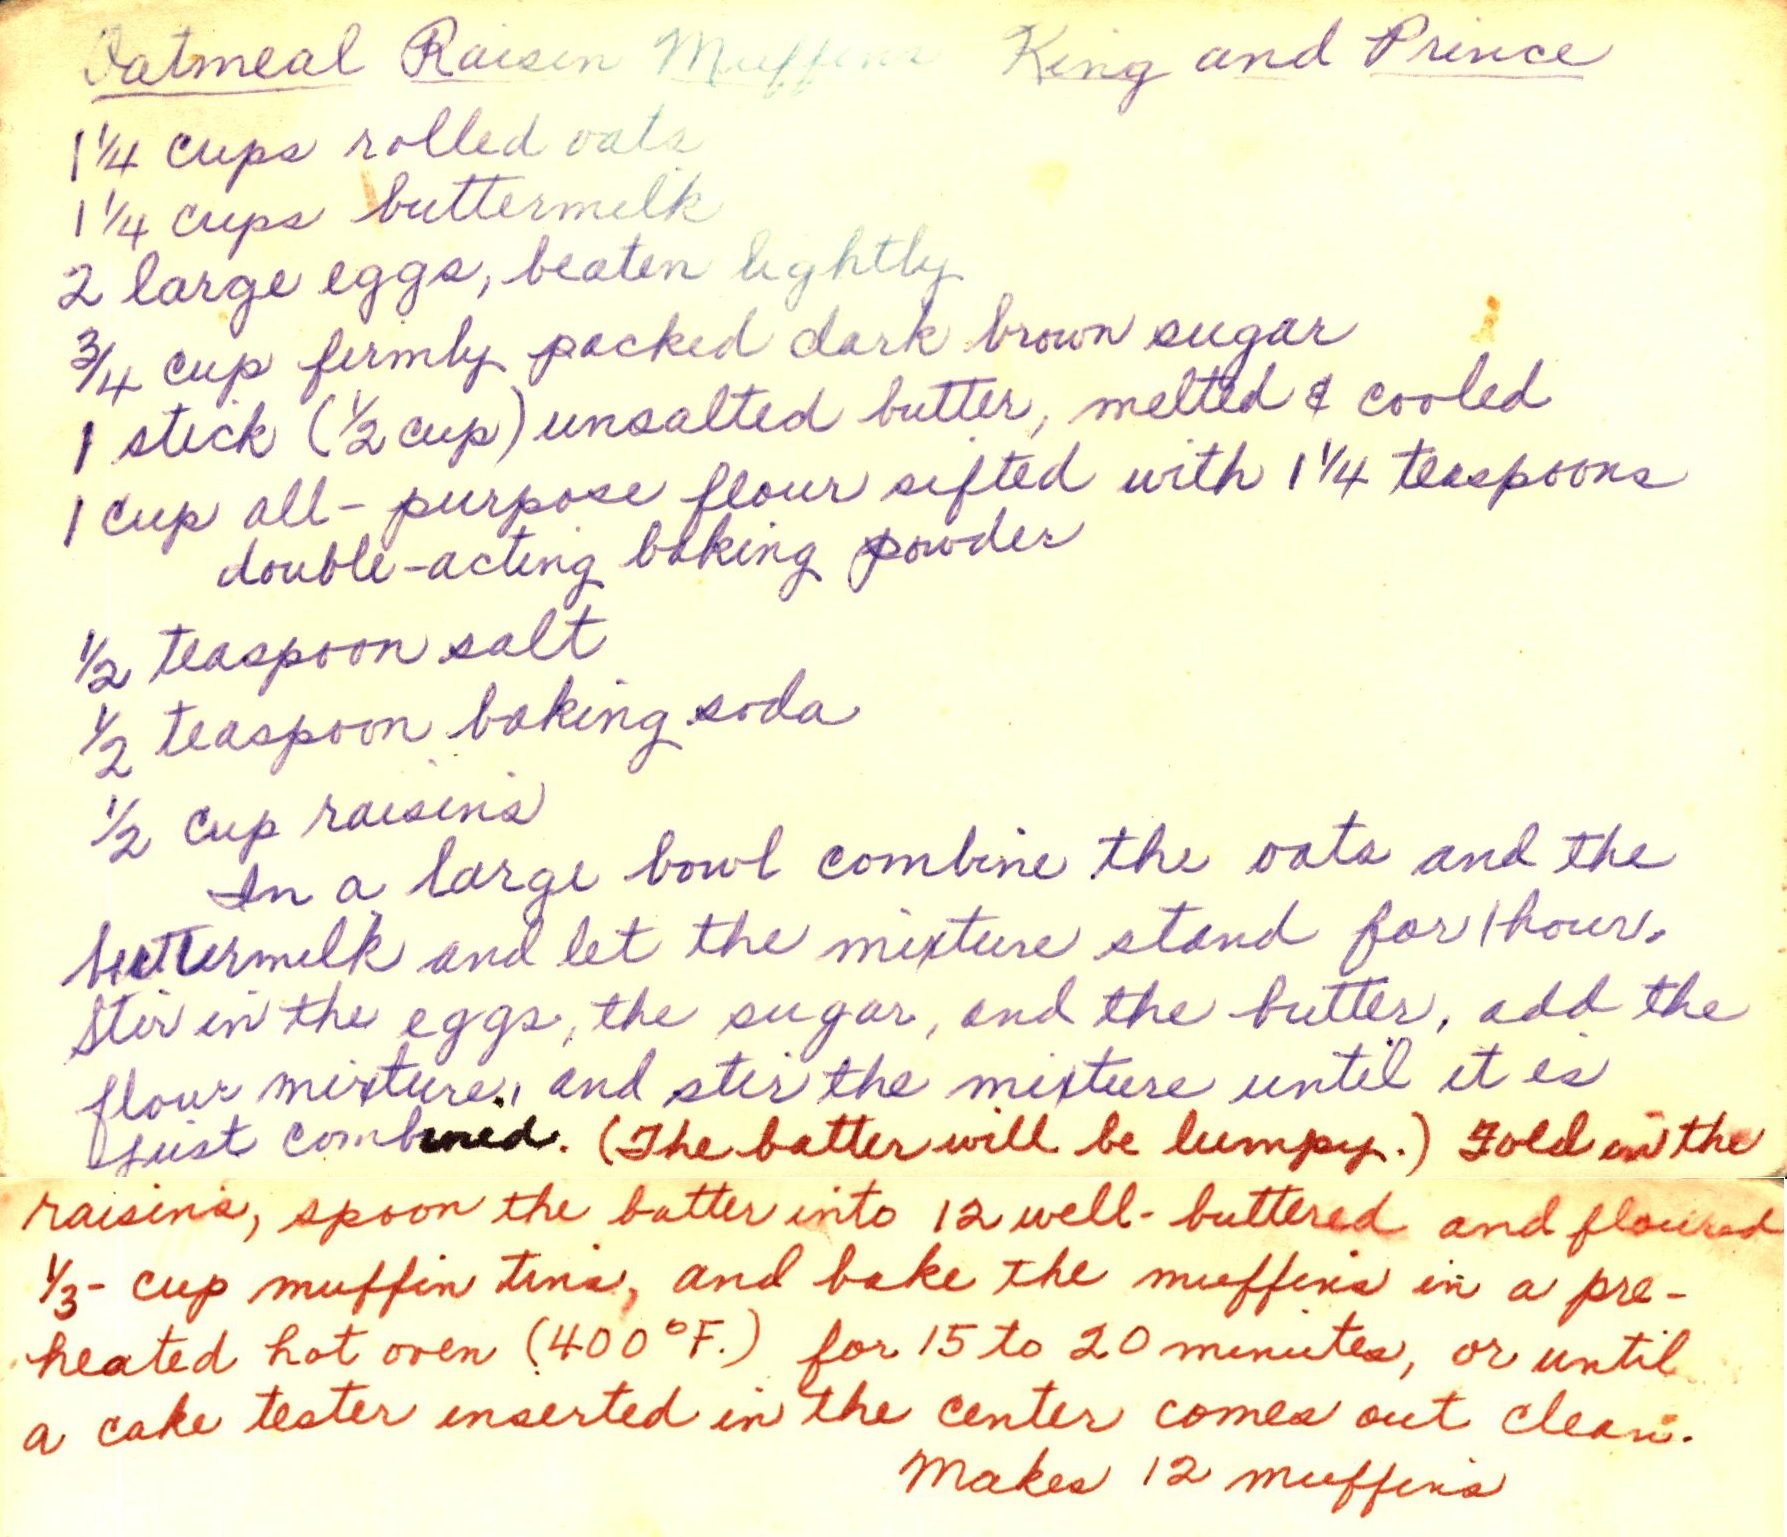 Oatmeal Raisin Muffins King and Prince
1 1/4 cups rolled oats
1 1/4 cups buttermilk
2 large eggs, beaten lightly
3/4 cup firmly packed dark brown sugar
1 stick (1/2 cup) unsalted butter, melted & cooled
1 cup all-purpose flour sifted with 1 1/4 teaspoons
double-acting baking powder
1/2 teaspoon salt
1/2 teaspoon baking soda
1/2 cup raisins
In a large bowl combine the oats and the
buttermilk and let the mixture stand for 1 hour.
Stir in the eggs, the sugar, and the butter, add the
flour mixture, and stir the mixture until it is
just combined. (The batter will be lumpy.) Fold in the
raisins, spoon the batter into 12 well-buttered and floured
1/3-cup muffin tins, and bake the muffins in a pre-
heated hot oven (400°F.) for 15 to 20 minutes, or until
a cake tester inserted in the center comes out clean.
Makes 12 muffins